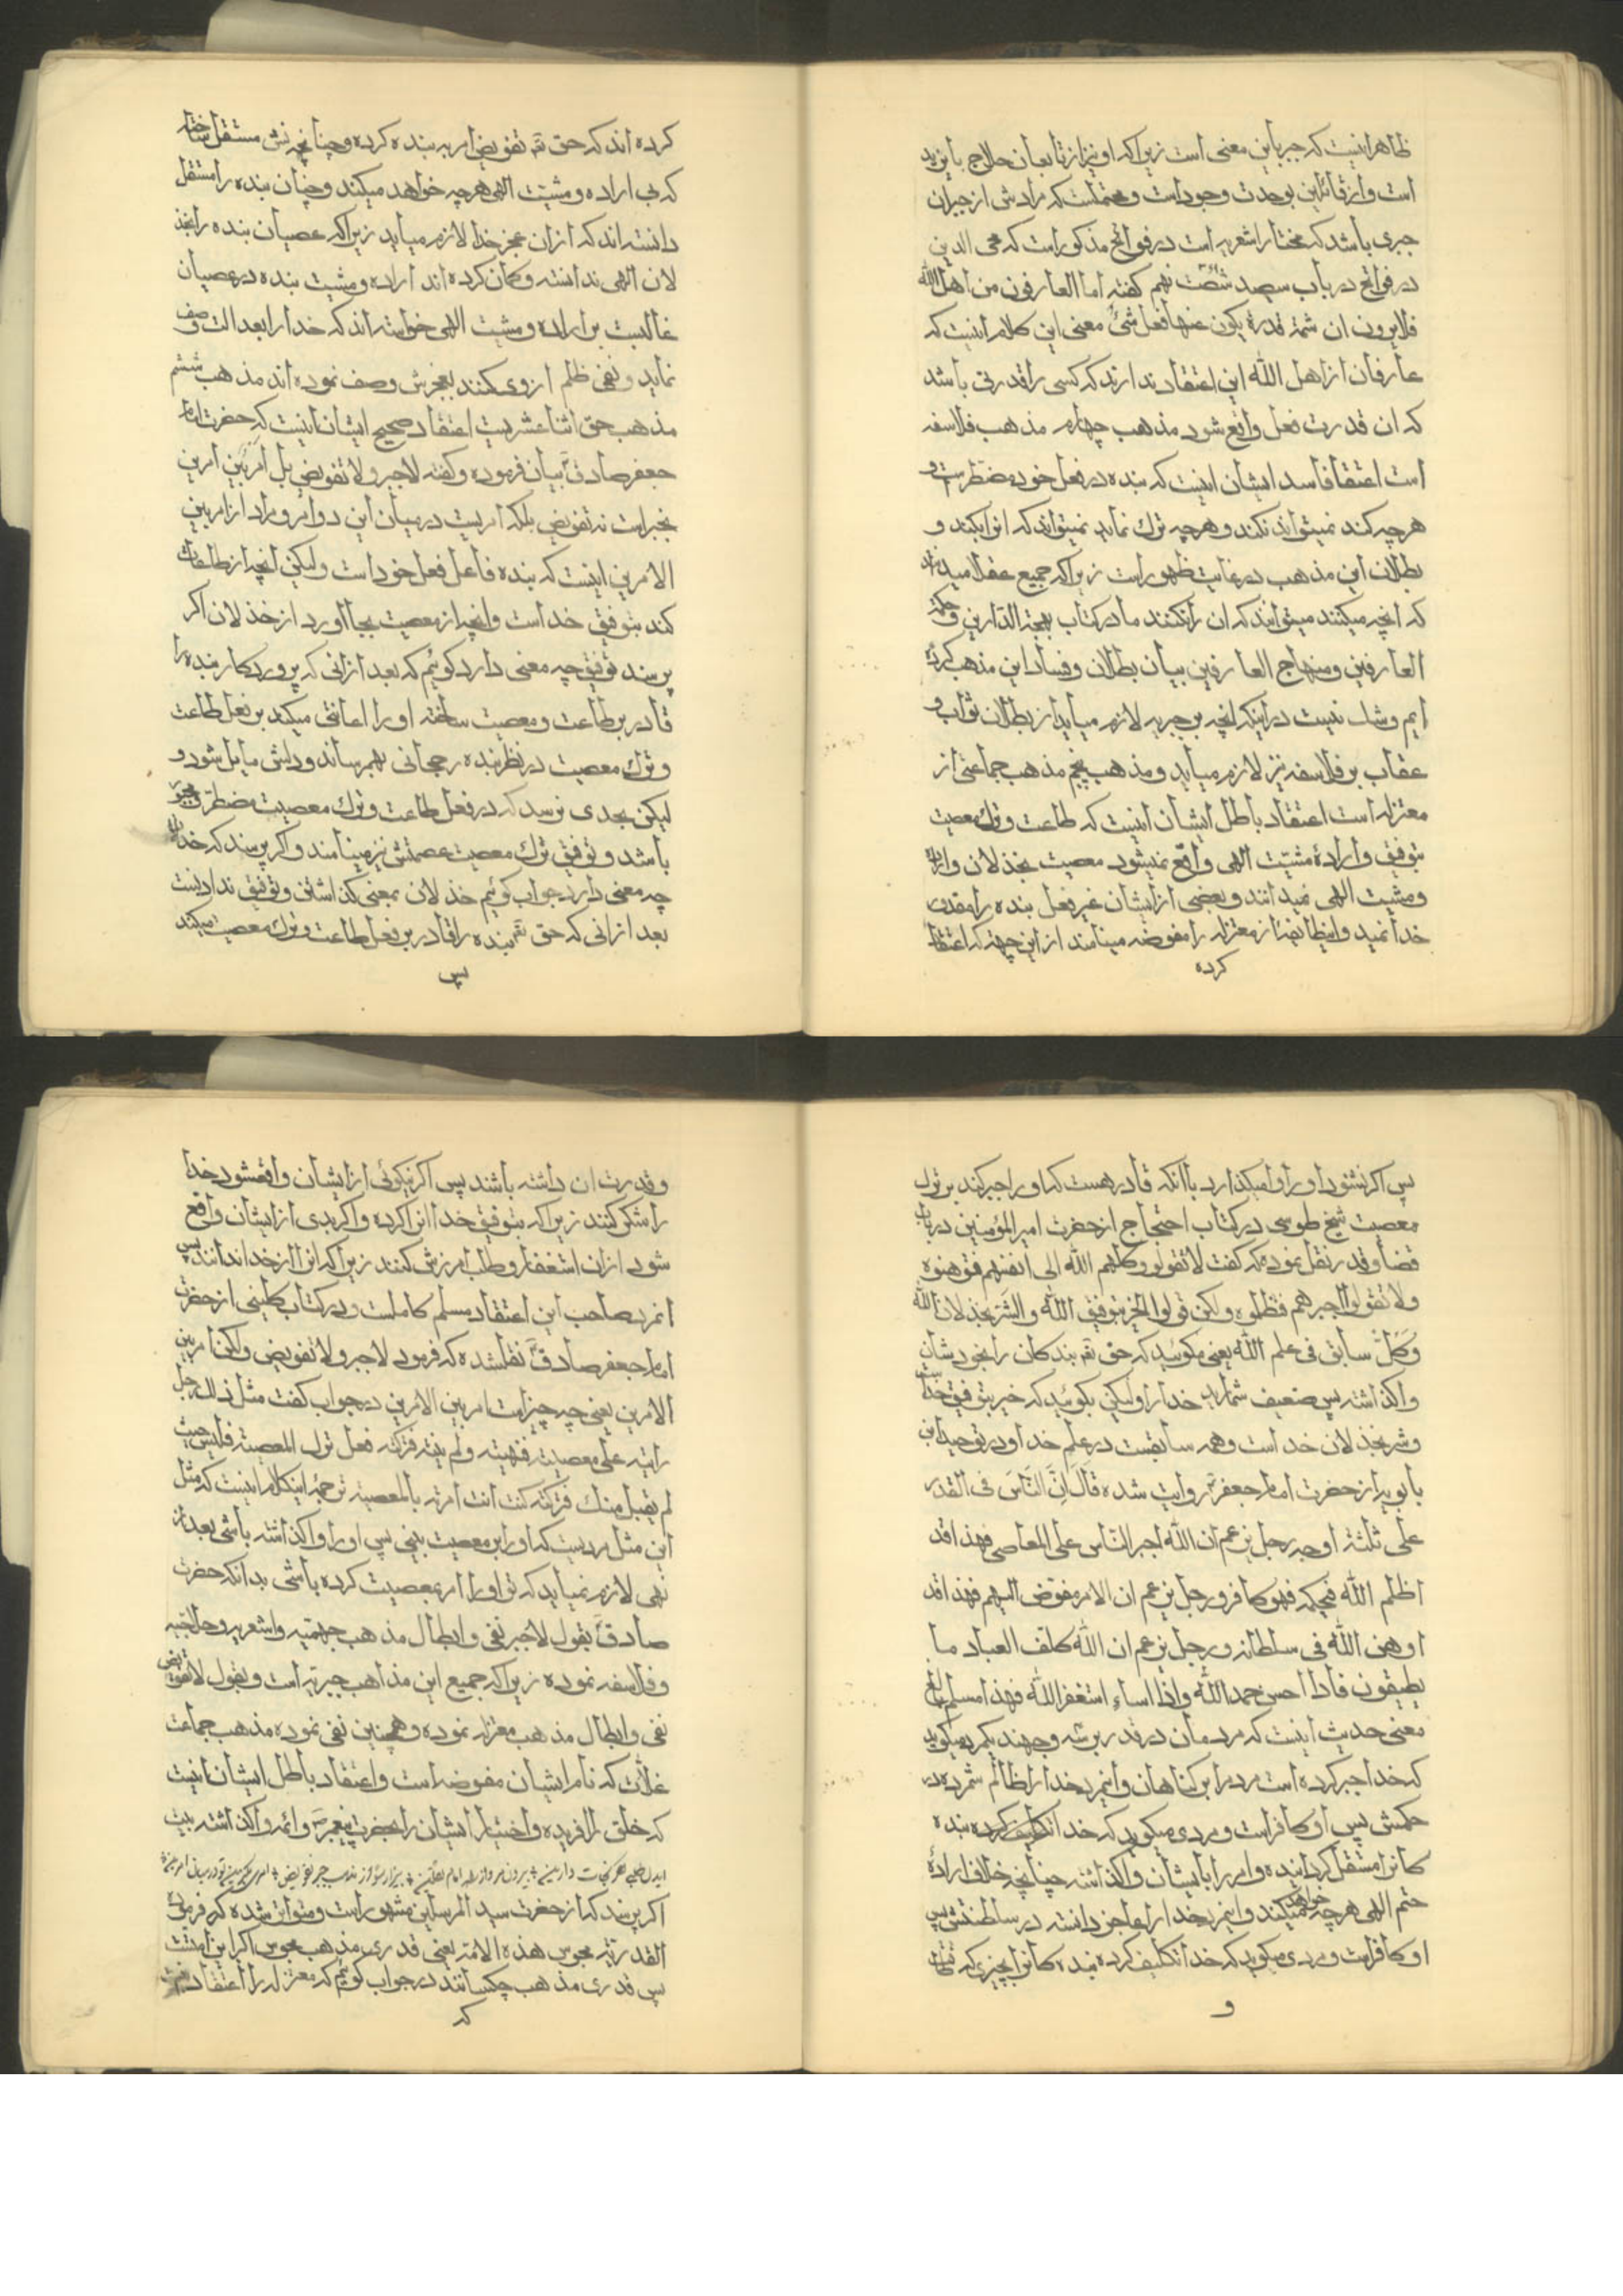 ظاهر اینست که جبر باین معنی است زیرا که او نیز از تابعان حلاج و بایزید
است و از قائلین بوحدت وجود است و محتملست که مرادش از جبران
جبری باشد که مختار اشعریه است در فواتح مذکور است که محی الدین
در فواتح در باب سیصد شصت نهم کفته اما العارفون من اهل الله
فلا یرون ان ثمة قدرة یکون عنها فعل شئ معنی این کلام اینست که
عارفان از اهل الله این اعتقاد ندارند که کسی را قدرتی باشد
که ان قدرت فعل واقع شود مذهب چهارم مذهب فلاسفه
است اعتقاد فاسد ایشان اینست که بنده در فعل خود مضطرست و
هرچه کند نمیتواند نکند و هرچه ترک نماید نمیتواند که انرا بکند و
بطلان این مذهب در غایت ظهور است زیرا که جمیع عقلا میدانند
که انچه میکنند میتوانند که ان را نکنند ما در کتاب بهجة الدارین و حکمة
العارفین و منهاج العارفین بیان بطلان و فساد این مذهب کرده
ایم و شک نیست در اینکه انچه بر جبریه لازم میاید از بطلان ثواب و
عقاب بر فلاسفه نیز لازم میاید و مذهب پنجم مذهب جماعتی از
معتزله است اعتقاد باطل ایشان اینست که طاعت و ترک معصیت
بتوفیق و اراده مشیّت الهی واقع نمیشود معصیت بخذلان و اراده
و مشیت الهی نمیدانند و بعضی از ایشان غیر فعل بنده را مقدور
خدا نمید و اینطائفه از معتزله را مفوضه مینامند از این جهة که اعتقاد
کرده
کرده اند که حق تعـ تفویض امر به بنده کرده و چنانچه نش مستقل ساخته
که بی اراده و مشیّت الهی هرچه خواهد میکند و چنان بنده را مستقل
دانسته اند که از ان عجز خدا لازم میاید زیرا که عصیان بنده را بخذ
لان الهی ندانسته و کمان کرده اند اراده و مشیت بنده در عصیان
غالبست بر اراده و مشیت الهی خواسته اند که خدا را بعدالت وصف
نماید و نفی ظلم از وی کنند بعجزش وصف نموده اند مذهب ششم
مذهب حق اثنا عشریست اعتقاد صحیح ایشان اینست که حضرت امام
جعفر صادق بیان فرموده و کفته لا جبر و لا تفویض بل امر بین امرین
نجبر است نه تفویض بلکه امریست در میان این دو امر و مراد از امر بین
الامرین اینست که بنده فاعل فعل خود است ولیکن انچه از طاعات
کند بتوفیق خداست و انچه از معصیت بجا اورد از خذلان اکر
پرسند توفیق چه معنی دارد کوئیم که بعد از انی که پروردکار بنده را
قادر بر طاعت و معصیت ساخته او را اعانتی میکند بر فعل طاعت
و ترک معصیت در نظر بنده رجحانی بهم رساند و دلش مایل شود و
لیکن بحدی نرسد که در فعل طاعت و ترک معصیت مضطر و مجبر
باشد و توفیق ترک معصیت عصمتش نیز مینامند و اکر پرسند که خذلان
چه معنی دارد جواب کوئیم خذلان بمعنی کذاشتن و توفیق ندادنست
بعد از انی که حق تعـ بنده را قادر بر فعل طاعت و ترک معصیت میکند
پس
پس اکر نشنود او را وامیکذارد با انکه قادر هست که او را جبر کند بر ترک
معصیت شیخ طوسی در کتاب احتجاج از حضرت امیر المؤمنین در باب
قضا و قدر نقل نموده که کفت لا تقولوا وکلهم الله الی انفسهم فتوهنوه
ولا تقولوا اجبرهم فتظلموه ولکن قولوا الخیر بتوفیق الله و الشر بخذلان الله
وکلّ سابق فی علم الله یعنی مکوئید که حق تعـ بندکان را بخودشان
واکذاشته پس ضعیف شمارید خدا را ولیکن بکوئید که خیر بتوفیق خداست
و شر بخذلان خداست و همه سابقست در علم خدا و در توحید ابن
بابویه از حضرت امام جعفر روایت شده قال انّ الناس فی القدر
علی ثلثة اوجه رجل یزعم ان الله اجبر الناس علی المعاصی فهذا قد
اظلم الله فی حکمه فهو کافر و رجل یزعم ان الامر مفوّض الیهم فهذا قد
اوهن الله فی سلطانه و رجل یزعم ان الله کلف العباد ما
یطیقون فاذا احسن حمد الله و اذا اساء استغفر الله فهذا مسلم بالغ
معنی حدیث اینست که مردمان در قدر بر سه وجهند یکمرد میکوید
که خدا جبر کرده است مردم را بر کناهان و اینمرد خدا را ظالم شمرده در
حکمش پس او کافر است و مردی میکوید که خدا تکلیف کرده بنده
کانرا مستقل کردانیده و امر را بایشان واکذاشته چنانچه خلاف اراده
حتم الهی هرچه خواهند میکنند و اینمرد خدا را عاجز دانسته در سلطنتش پس
او کافر است و مردی میکوید که خدا تکلیف کرده بنده کانرا بچیزی که طاقت
و
و قدرت ان داشته باشند پس اکر نیکوئی از ایشان واقعشود خدا
را شکر کنند زیرا که بتوفیق خدا انرا کرده و اکر بدی از ایشان واقع
شود از ان استغفار و طلب امرزش کنند زیرا که انرا از خدا ندانند پس
انمرد صاحب این اعتقاد مسلم کاملست و در کتاب کلینی از حضرت
امام جعفر صادق نقلشده که فرمود لا جبر و لا تفویض ولکن امر بین
الامرین یعنی چه چیز است امر بین الامرین در جواب کفت مثل ذلک رجل
رایته علی معصیته فنهیته ولم ینته فترکته فعل تلک المعصیة فلیس حیث
لم یقبل منک فترکته کنت انت امرته بالمعصیة ترجمه اینکلام اینست که مثل
این مثل مردیست که او را بر معصیت بینی پس او را واکذاشته باشی بعد از
نهی لازم نمیاید که تو او را امر بمعصیت کرده باشی بدانکه حضرت
صادق بقول لا جبر نفی و ابطال مذهب جهمیه و اشعریه و حلاجیه
و فلاسفه نموده زیرا که جمیع این مذاهب جبریه است و بقول لا تفویض
نفی و ابطال مذهب معتزله نموده و همچنین نفی نموده مذهب جماعت
غلات که نام ایشان مفوضه است و اعتقاد باطل ایشان اینست
که خلق را افریده و اختیار ایشان را بحضرت پیغمبر و ائمه واکذاشته بیت
اکر پرسند که از حضرت سید المرسلین مشهور است و متواتر شده که فرموده
القدریّة مجوس هذه الامة یعنی قدری مذهب مجوس اکر این امتست
پس قدری مذهب چکسانند در جواب کوئیم که معتزله را اعتقاد
که